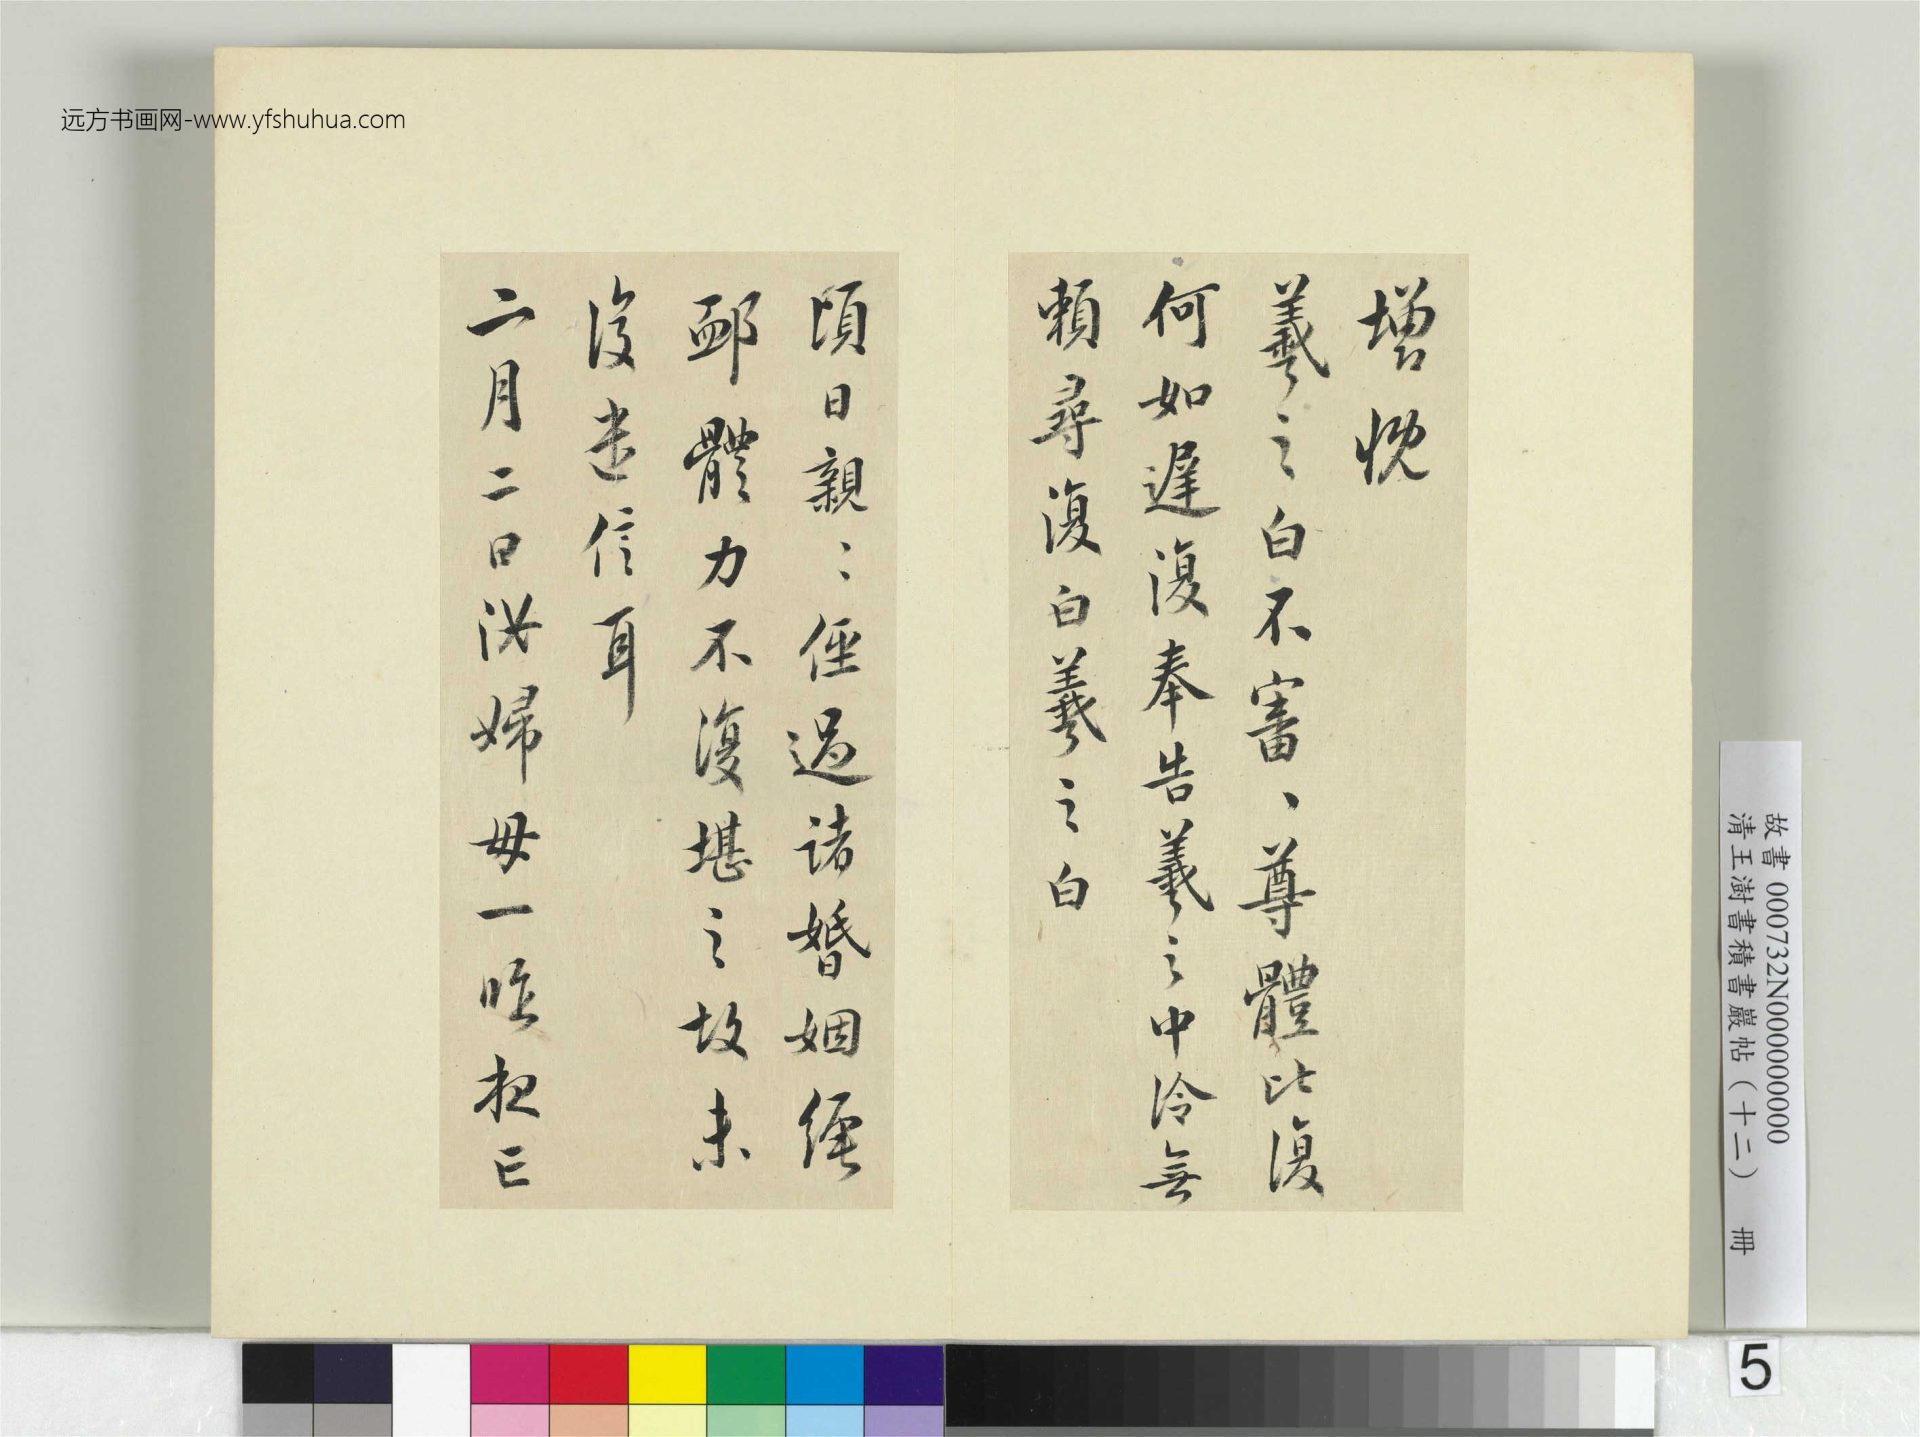 远方书画网-www.yfshuhua.com
增慨
羲之白不審、尊體比復
何如遲復奉告羲之中冷無
賴尋復白羲之白
頃日親〻經過諸婚姻
體力不復堪之故未
復遣信耳
二月二日汝婦母一
故書 000732N000000000
清王澍書積書巖帖（十二） 冊
5